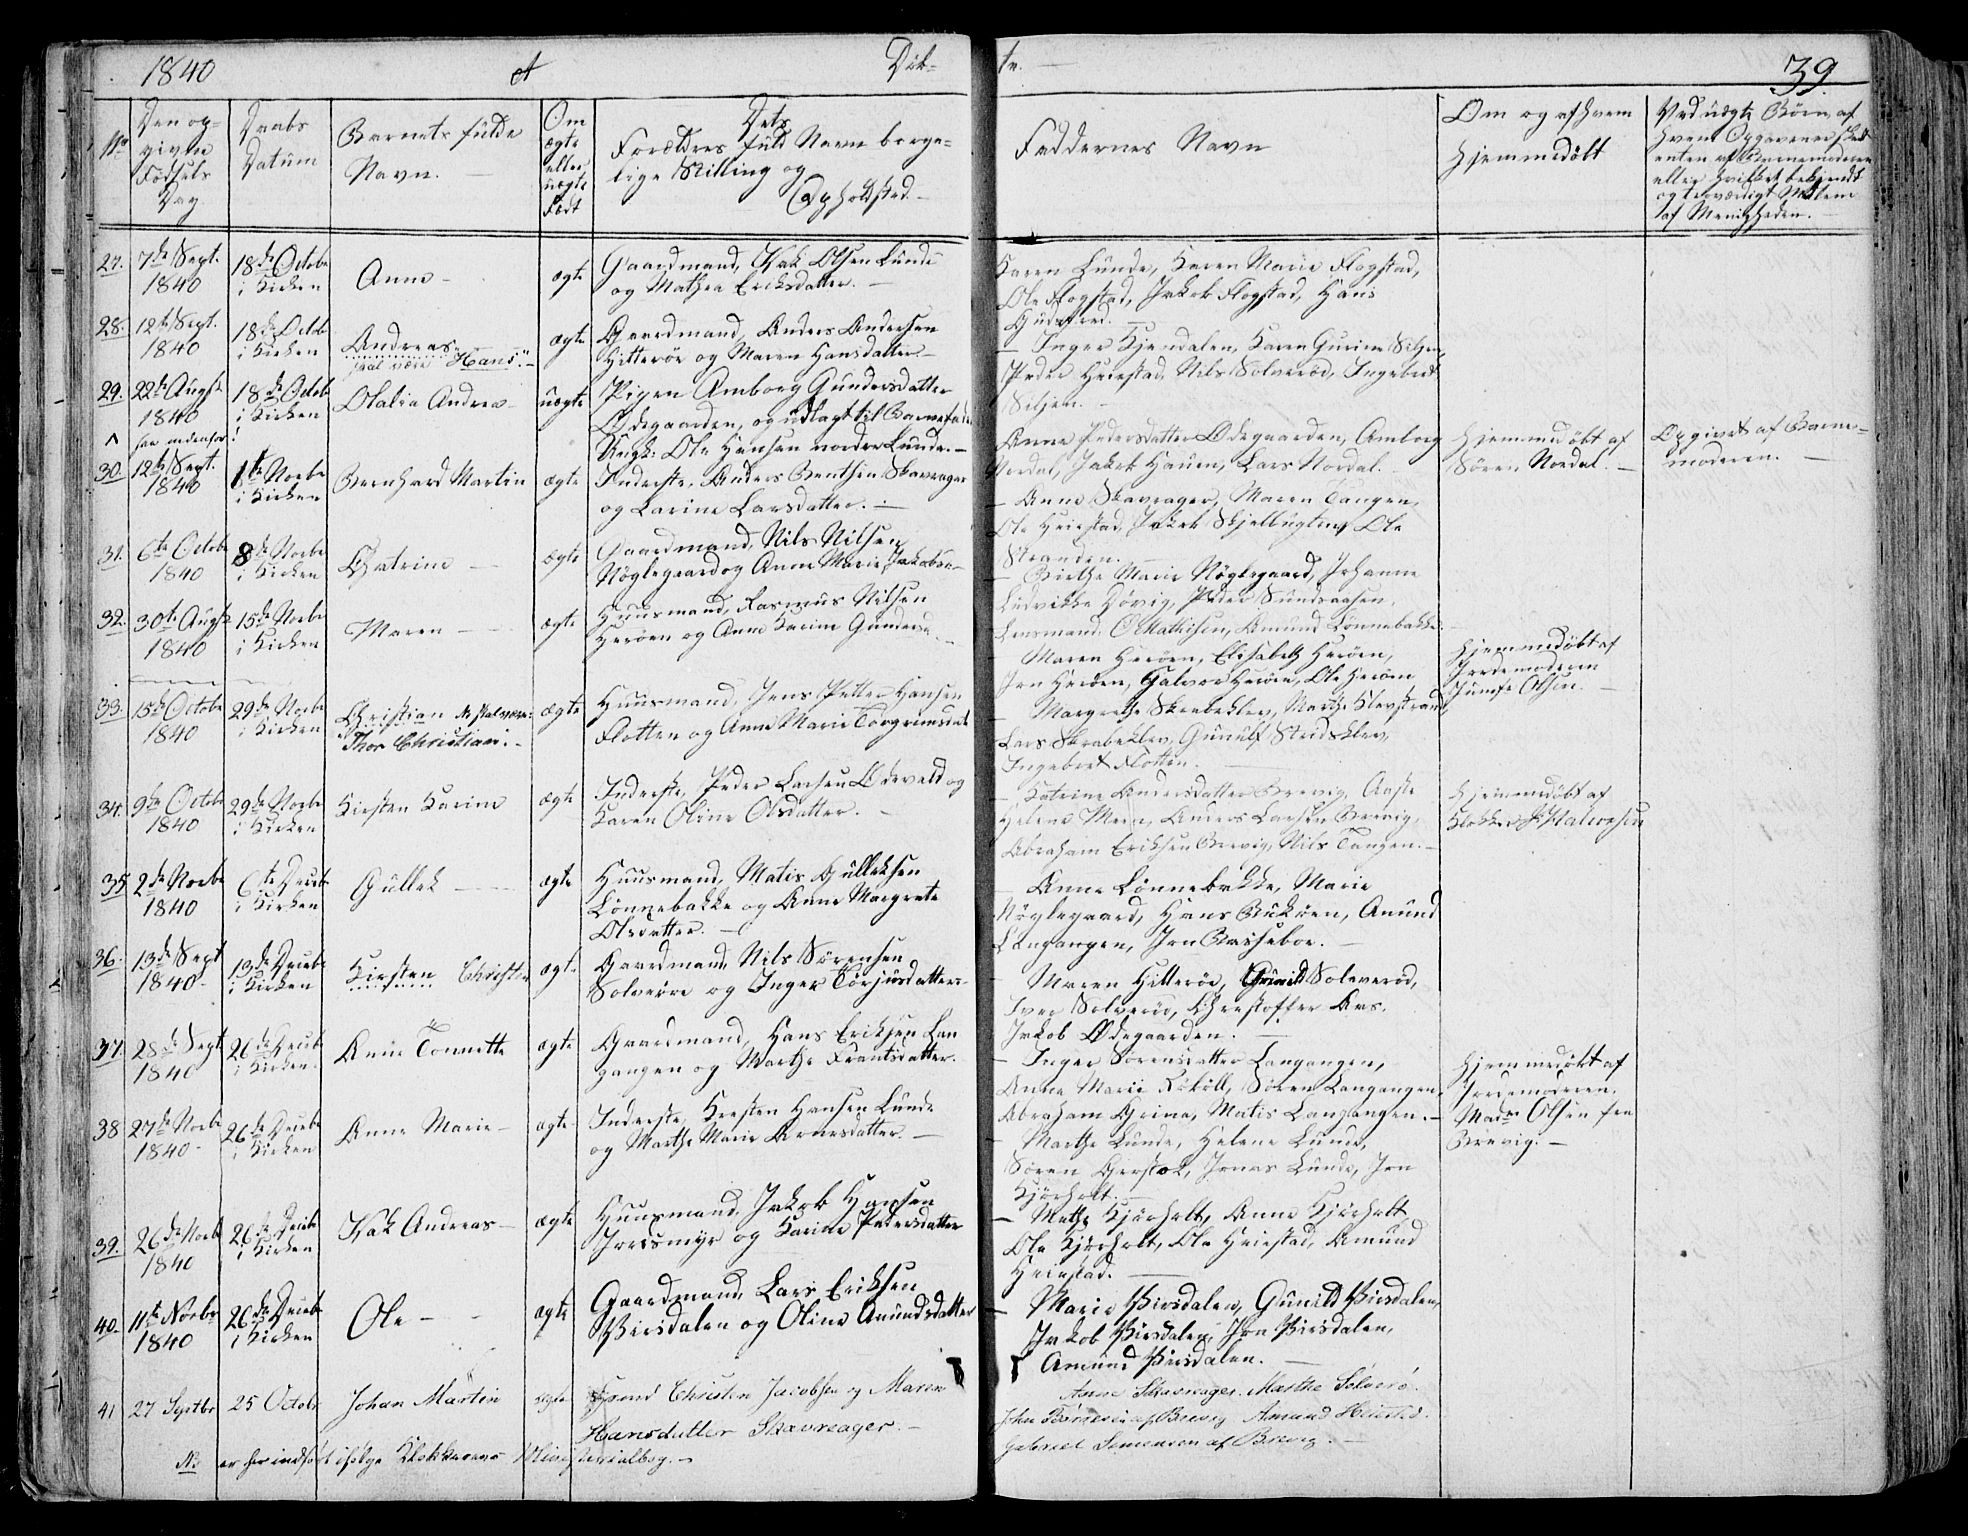 1840
Døb-
te.
39.
No
Den op-
givne
Fødsels
Dag
Daabs
Datum
Barnets fulde
Navn.
Om
ægte
eller
uægte
Født
Dets
Forældres fuld Navn borge-
lige Stilling og
Opholdsted.
Faddernes Navn
Om og af hvem
hjemmedøbt
Ved uægte Børn, af
hvem Opgaven er skeet
enten af Barnemoderen
eller hvilket bekjendt
og troværdigt Medlem
af Menigheden.
27. 7de Sept. 1840
18de Octobr i Kirken
Anne
ægte
Gaardmand, Isak Olsen Lunde
og Mathea Eriksdatter.
Karen Lunde, Karen Marie Flogstad,
Ole Flogstad, Jakob Flogstad, Hans
28. 12te Sept. 1840
18de Octob i Kirken
Andreas
skal være "Hans".
ægte
Gaardmand, Anders Andersen
Hitterøe og Maren Hansdatter
Inger Kjendalen, Karen Gurine Siljen,
Peder Heiestad, Nils Solverød, Ingebret
Siljen.
29. 22de Augst 1840
18de Octob i Kirken
Olalia Andrea
uægte
Pigen Amborg Gundersdatter
Ødegaarden, og udlagt til Barnefader
Ungk: Ole Hansen nordre Lunde.
Anne Pedersdatter Ødegaarden, Amborg
Nordal, Jakob Hauen, Lars Nordal.
Hjemmedøbt af
Søren Nordal.
Opgivet af Barne-
moderen.
see nedenfor!
30. 12te Sept. 1840
1te Novbr i Kirken
Bernhard Martin
ægte
Inderste, Anders Bentsen Skavrager
og Larine Larsdatter.
Anne Skavrager, Maren Tangen,
Ole Heiestad, Jakob Skjelbugten, Ole
Stranden.
31. 6te Octobr 1840
8de Novbr i Kirken
Chatrine
ægte
Gaardmand, Nils Nilsen
Nøglegaard og Anne Marie Jakobsd.
Birthe Marie Nøglegaard, Johanne
Ludvikke Døvig, Peder Sundsaasen,
Lensmand C. Mathisen, Amund Lønnebakke.
32. 30te Augst 1840
15de Novbr i Kirken
Maren
ægte
Huusmand, Rasmus Nilsen
Herøen og Anne Karine Gundersd.
Maren Herøen, Elisabeth Herøen,
Jon Herøen, Halvor Herøen, Ole Herøen
Hjemmedøbt af
Jordemoderen
Jumfr Olsen.
33. 15de Octobr 1840
29de Novbr i Kirken
Christian NB skal være:
Thor Christian.
ægte
Huusmand, Jens Petter Hansen
Flotten og Anne Marie Torgrimsdat
Margrethe Skrabeklev, Marthe Klevstrand,
Lars Skrabeklev, Gunulf Stridsklev,
Ingebret Flotten.
34. 9de Octobr 1840
29de Novbr i Kirken
Kirsten Karine
ægte
Inderste, Peder Larsen Ødevald og
Karen Oline Olsdatter.
Katrine Andersdatter Brevig, Aaste
Helene Meen, Anders Larsen Brevig,
Abraham Eriksen Brevig, Nils Tangen.
Hjemmedøbt af
Klokker J. Halvorsen
35. 2de Novbr 1840
6te Decbr i Kirken
Gullek
ægte
Huusmand, Matis Gulleksen
Lønnebakke og Anne Margrete
Olsdatter.
Anne Lønnebakke, Marie
Nøglegaard, Hans Bukøen, Amund
Langangen, Jon Basseboe.
36. 13de Sept 1840
13de Decbr i Kirken
Kirsten Christen
ægte
Gaardmand Nils Sørensen
Solverøe og Inger Torjusdatter.
Maren Hitterøe, Gunild Solverød,
Iver Solverød, Christoffer Aas,
Jakob Ødegaarden.
37. 28de Sept 1840
26de Decbr i Kirken
Anne Tonnette
ægte
Gaardmand, Hans Eriksen Lan
gangen og Marthe Frantsdatter.
Inger Sørensdatter Langangen,
Anne Marie Kokøll, Søren Langangen,
Abraham Grina, Matis Langangen.
Hjemmedøbt af
Jordemoderen,
Madm Olsen fra
Brevig.
38 27de Novbr 1840
26de Decbr i Kirken
Anne Marie
ægte
Inderste, Kresten Hansen Lunde
og Marthe Marie Arnesdatter.
Marthe Lunde, Helene Lunde,
Søren Gierstok, Jonas Lunde, Jon
Kjørholt.
39. 26de Novbr 1840
26de Decbr i Kirken
Isak Andreas
ægte
Huusmand, Jakob Hansen
Jorismyr og Karine Petersdatter
Mathe Kjørholt, Anne Kjørholt,
Ole Kjørholt, Ole Heiestad, Amund
Heiestad.
40. 11te Novbr 1840
26de Decbr i Kirken
Ole
ægte
Gaardmand, Lars Eriksen
Versdalen og Oline Amundsdatter
Marie Versdalen, Gunild Versdalen,
Jakob Versdalen, Jon Versdalen,
Amund Versdalen.
41 27 Septbr
25 Octobr
Johan Martin
ægte
Christen Jacobsen og Maren
Hansdatter Skavreager.
Anne Skavreager. Marthe Solverø.
John Sørensen af Brevig Amund Heiestad.
Gabriel Simensen af Brevig.
NB er her indført ifølge Klokkerens Ministerialbog.